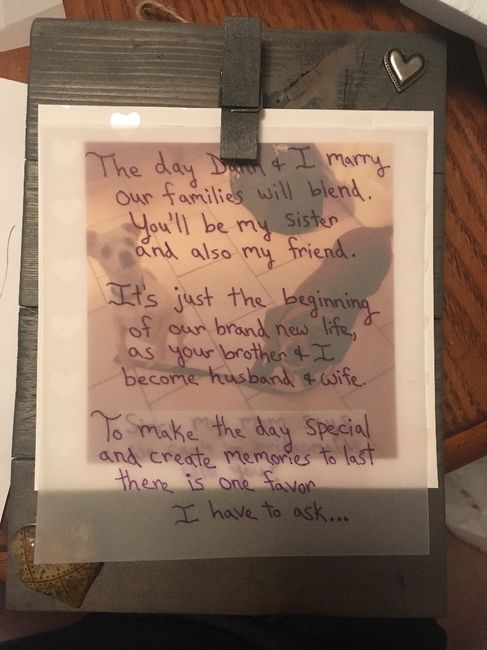 The day & I marry
our families will blend.
You'll be my sister
and also my friend.
It's just the beginning
of our brand new life,
as your brother & I
become husband & wife.
To make the day special
and create memories to last
there is one favor
I have to ask...